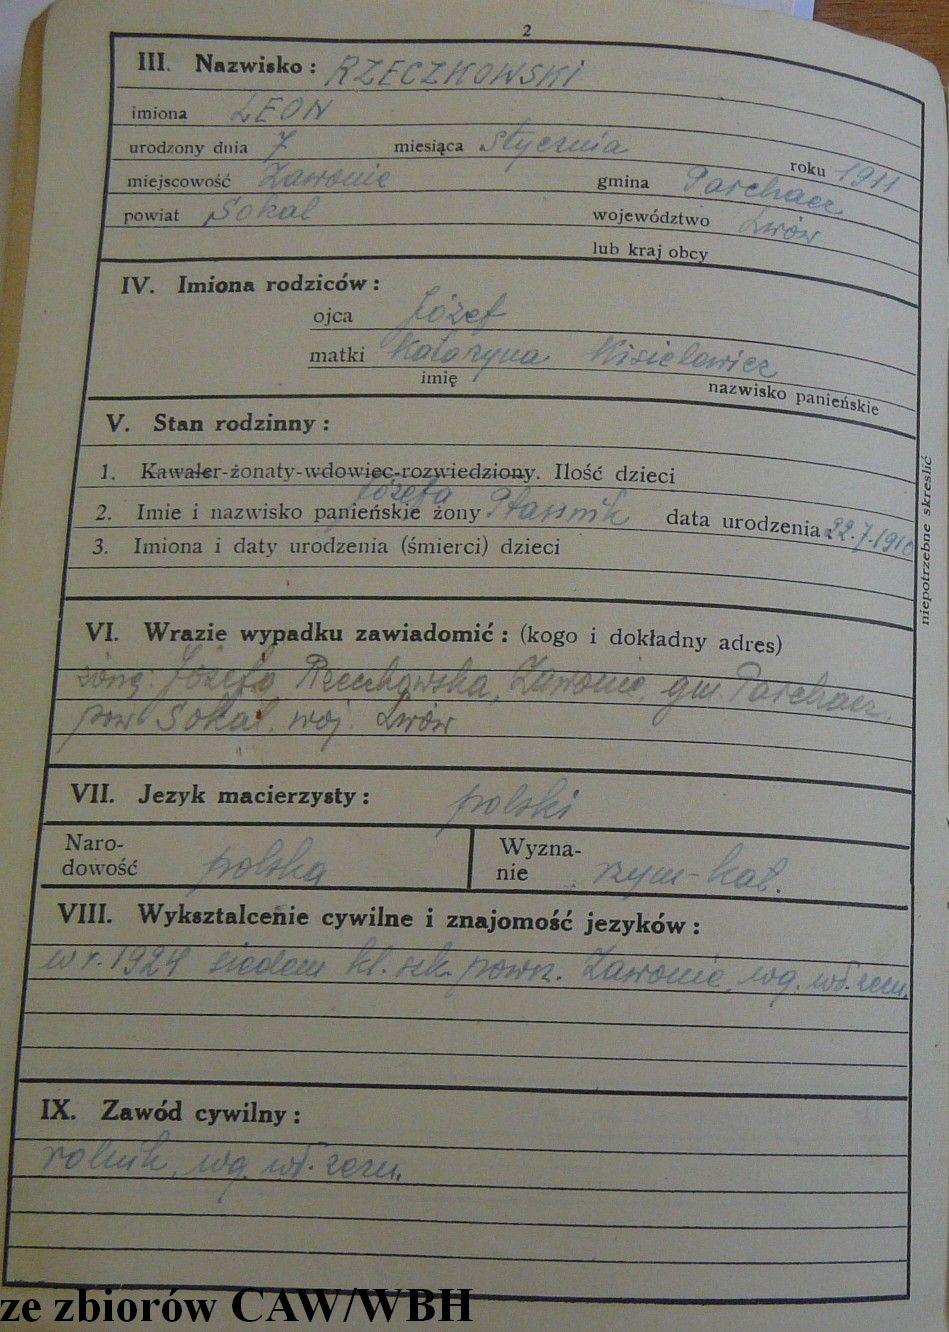 2
III. Nazwisko: RZECZKOWSKI
imiona LEON
urodzony dnia 7 miesiąca stycznia roku 1911
miejscowość Zawonie gmina Parchacz
powiat Sokal województwo Lwów
lub kraj obcy
IV. Imiona rodziców:
ojca Józef
matki Katarzyna Kisielewicz
imię nazwisko panieńskie
V. Stan rodzinny:
1. Kawaler-żonaty-wdowiec-rozwiedziony. Ilość dzieci
Józefa
2. Imie i nazwisko panieńskie żony data urodzenia 22.7.1910
3. Imiona i daty urodzenia (śmierci) dzieci
niepotrzebne skreślić
VI. Wrazie wypadku zawiadomić: (kogo i dokładny adres)
żonę: Józefa Rzeczkowska, Zawonie, gm. Parchacz,
pow. Sokal, woj. Lwów
VII. Jezyk macierzysty: polski
Naro-
dowość polska
Wyzna-
nie rzym-kat.
VIII. Wyksztalcenie cywilne i znajomość jezyków:
w r. 1924 siedem kl. szk. powsz. Zawonie, wg. wł. zezn.
IX. Zawód cywilny:
rolnik, wg. wł. zezn.
ze zbiorów CAW/WBH